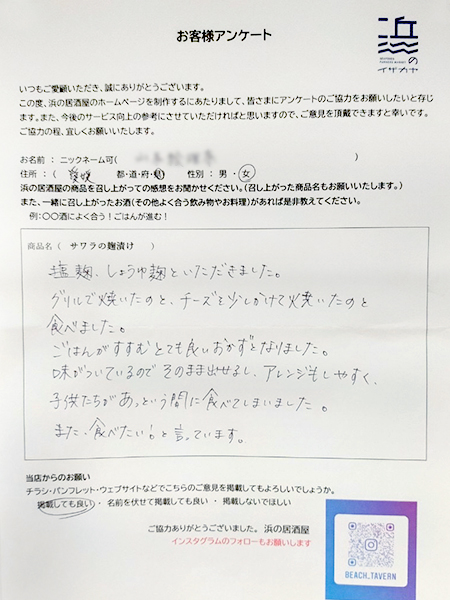 お客様アンケート
浜の
イザカヤ
いつもご愛顧いただき、誠にありがとうございます。
この度、浜の居酒屋のホームページを制作するにあたりまして、皆さまにアンケートのご協力をお願いしたいと存じ
ます。また、今後のサービス向上の参考にさせていただければと思いますので、ご意見を頂戴できますと幸いです。
ご協力の程、宜しくお願いいたします。
お名前:ニックネーム可( )
住所:( 愛媛 都・道・府・県) 性別:男・女
浜の居酒屋の商品を召し上がっての感想をお聞かせください。(召し上がった商品名もお願いいたします。)
また、一緒に召し上がったお酒(その他よく合う飲み物やお料理)があれば是非教えてください。
例:○○酒によく合う!ごはんが進む!
商品名( サワラの麹漬け )
塩麹、しょうゆ麹といただきました。
グリルで焼いたのと、チーズを少しかけて焼いたのと
食べました。
ごはんがすすむとても良いおかずとなりました。
味がついているのでそのまま出せるし、アレンジもしやすく、
子供たちがあっという間に食べてしまいました。
また、食べたい!と言っています。
当店からのお願い
チラシ・パンフレット・ウェブサイトなどでこちらのご意見を掲載してもよろしいでしょうか。
掲載しても良い ・ 名前を伏せて掲載しても良い ・ 掲載しないでほしい
ご協力ありがとうございました。浜の居酒屋
インスタグラムのフォローもお願いします
BEACH_TAVERN